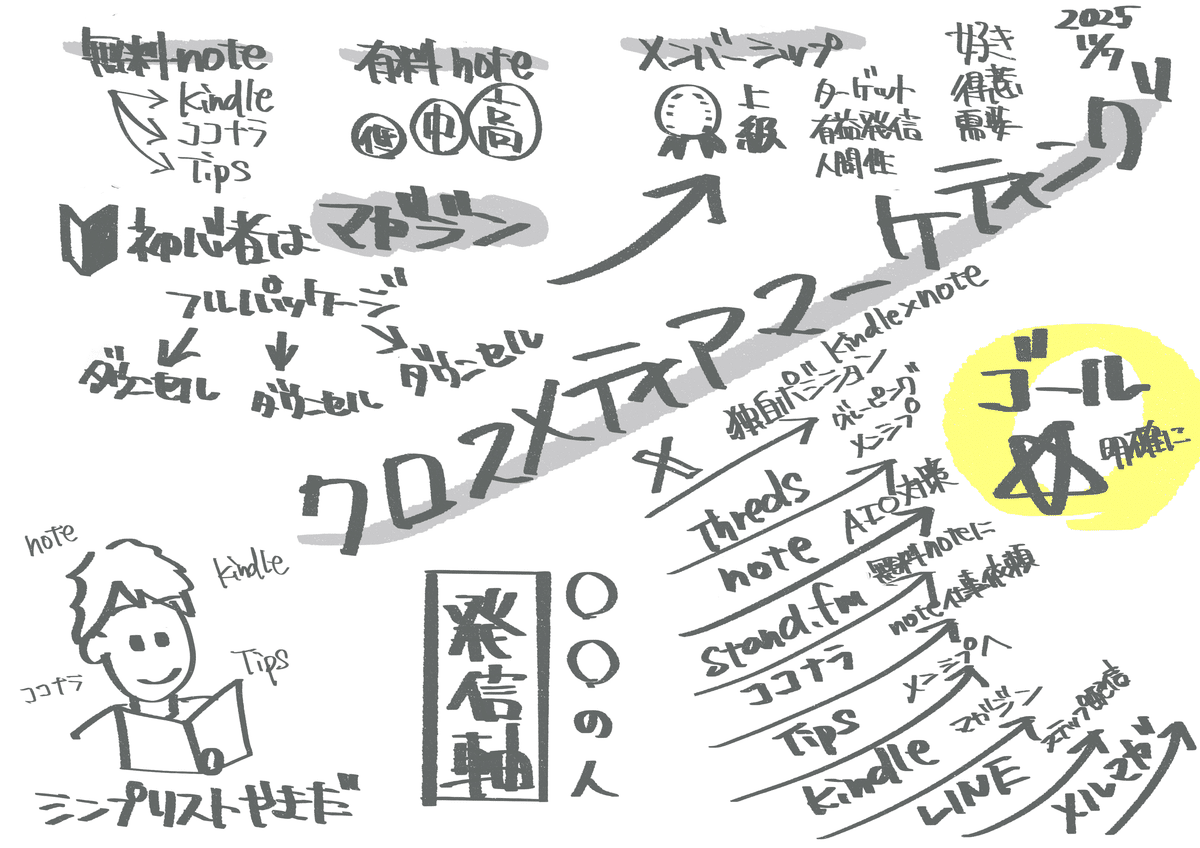 2025
11/7
無料note
Kindle
ココナラ
Tips
有料note
低
中
高
メンバーシップ
上級
ターゲット
有益発信
人間性
好き
得意
需要
初心者は
マガジン
フルパッケージ
ダウンセル
ダウンセル
ダウンセル
クロスメディアマーケティング
Kindle×note
ゴール
明確に
X
独自ポジション
Threds
グルーピング
メンシプ
note
AIO対策
stand.fm
無料noteに
ココナラ
note仕事依頼
Tips
メンシプへ
Kindle
マガジン
LINE
ステップ配信
メルマガ
発信軸
〇〇の人
note
Kindle
ココナラ
Tips
シンプリストやまだ